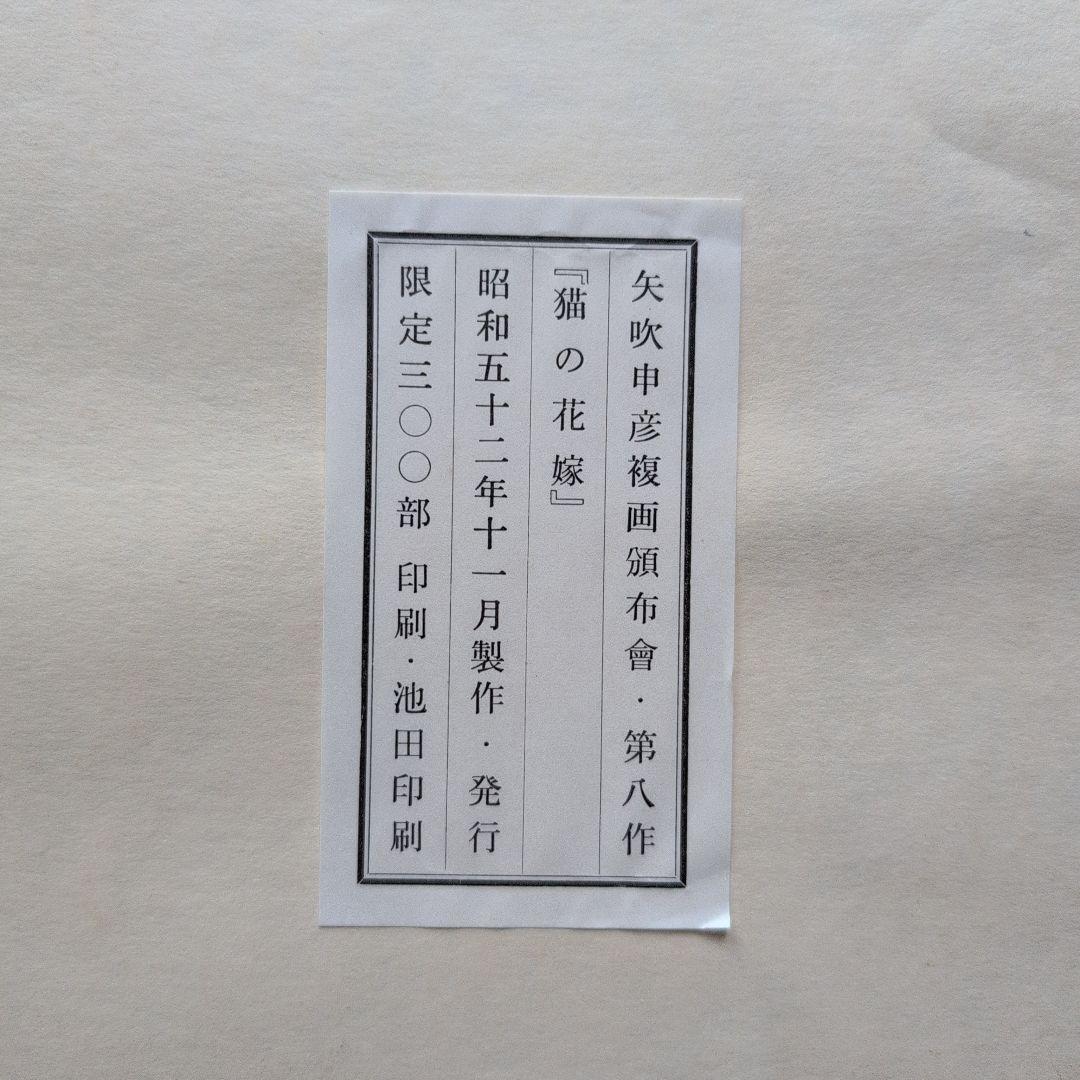 矢吹申彦複画頒布會・第八作
『猫の花嫁』
昭和五十二年十一月製作・発行
限定三〇〇部 印刷・池田印刷